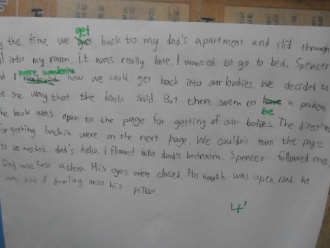 get
the time we back to my dad's apartment and slid through
into my room. It was really late. I wanted to go to bed. Spencer
were wondering
how we could get back into our bodies. We decided to
the way that the book said. But there seem to a problem
be
The book was open to the page for getting of our bodies. The
for getting back in were on the next page. We couldn't turn the page
we needed dad's help. I floated into dad's bedroom. Spencer followed me.
Dad was fast asleep. His eyes were closed. His mouth was open, and he
drooling into his pillow